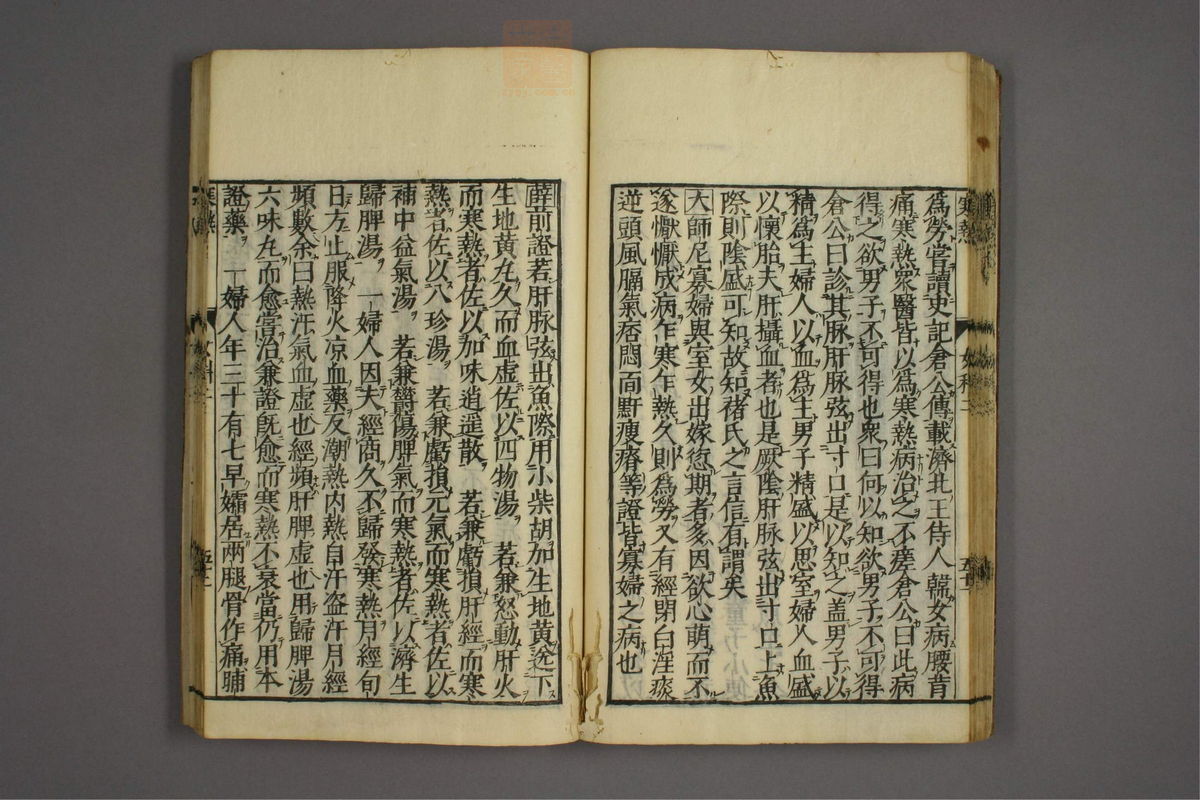 為勞嘗讀史記倉公傳載濟北王侍人韓女病腰背
痛寒熱衆醫皆以為寒熱病治之不瘥倉公曰此病
得之欲男子不可得也衆曰何以知欲男子不可得
倉公曰診其脉肝脉弦出寸口是以知之盖男子以
精為主婦人以血為主男子精盛以思室婦人血盛
以懷胎夫肝攝血者也是厥陰肝脉弦出寸口上魚
際則陰盛可知故知褚氏之言信有謂矣
大師尼寡婦與室女出嫁愆期者多因欲心萌而不
遂懨懨成病乍寒乍熱久則為勞又有經閉白淫痰
逆頭風膈氣痞悶面䵟瘦瘠等證皆寡婦之病也
薛前證若肝脉弦出魚際用小柴胡加生地黄送下
生地黄丸久而血虚佐以四物湯 若兼怒動肝火
而寒熱者佐以加味逍遥散 若兼虧損肝經而寒
熱者佐以八珍湯 若兼虧損元氣而寒熱者佐以
補中益氣湯 若兼欝傷脾氣而寒熱者佐以濟生
歸脾湯 一婦人因夫經商久不歸發寒熱月經旬
日方止服降火凉血藥反潮熱内熱自汗盗汗月經
頻數余曰熱汗氣血虚也經頻肝脾虚也用歸脾湯
六味丸而愈嘗治兼證旣愈而寒熱不衰當仍用本
證藥 一婦人年三十有七早孀居兩腿骨作痛晡